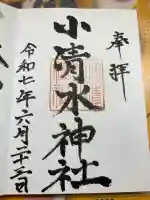 奉拝
小清水神社
令和七年六月二十三日